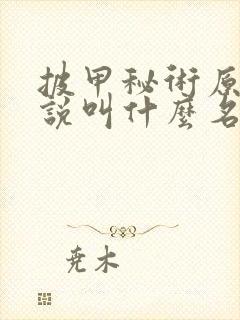 披甲秘術原
說叫什麼名
尧木